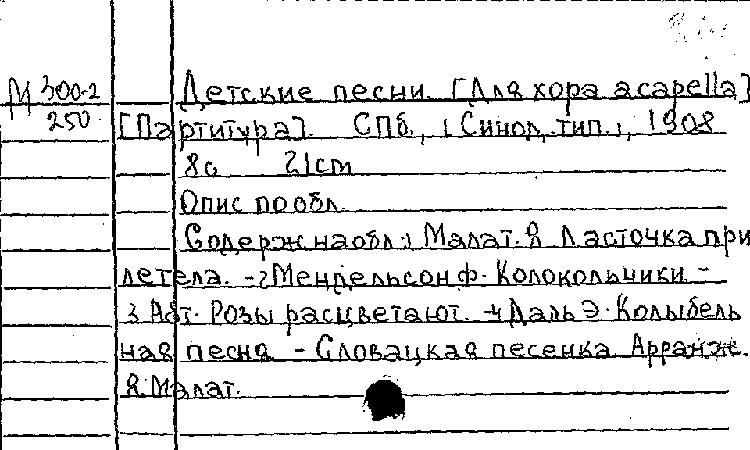 М 300-2 Детские песни. [Для хора acapella]
250 [Партитура]. СПб., (Синод. тип.), 1908
8с 21cm
Опис по обл.
Содерж на обл: 1 Малат. Я Ласточка при
летела. - 2 Мендельсон Ф. Колокольчики. -
3 Абт. Розы расцветают. - 4 Даль Э. Колыбель
ная песня. - Словацкая песенка Арранж.
Я. Малат.